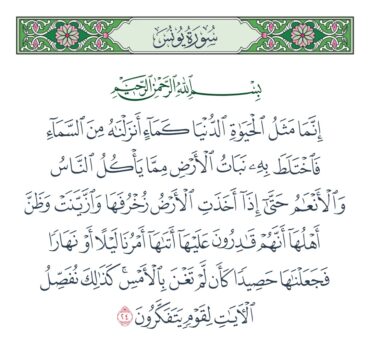 سُورَةُ يُونُسَ
بِسْمِ ٱللَّهِ ٱلرَّحْمَٰنِ ٱلرَّحِيمِ
إِنَّمَا مَثَلُ ٱلْحَيَوٰةِ ٱلدُّنْيَا كَمَآءٍ أَنزَلْنَٰهُ مِنَ ٱلسَّمَآءِ
فَٱخْتَلَطَ بِهِۦ نَبَاتُ ٱلْأَرْضِ مِمَّا يَأْكُلُ ٱلنَّاسُ
وَٱلْأَنْعَٰمُ حَتَّىٰٓ إِذَآ أَخَذَتِ ٱلْأَرْضُ زُخْرُفَهَا وَٱزَّيَّنَتْ وَظَنَّ
أَهْلُهَآ أَنَّهُمْ قَٰدِرُونَ عَلَيْهَآ أَتَىٰهَآ أَمْرُنَا لَيْلًا أَوْ نَهَارًا
فَجَعَلْنَٰهَا حَصِيدًا كَأَن لَّمْ تَغْنَ بِٱلْأَمْسِ ۚ كَذَٰلِكَ نُفَصِّلُ
ٱلْءَايَٰتِ لِقَوْمٍ يَتَفَكَّرُونَ ٢٤